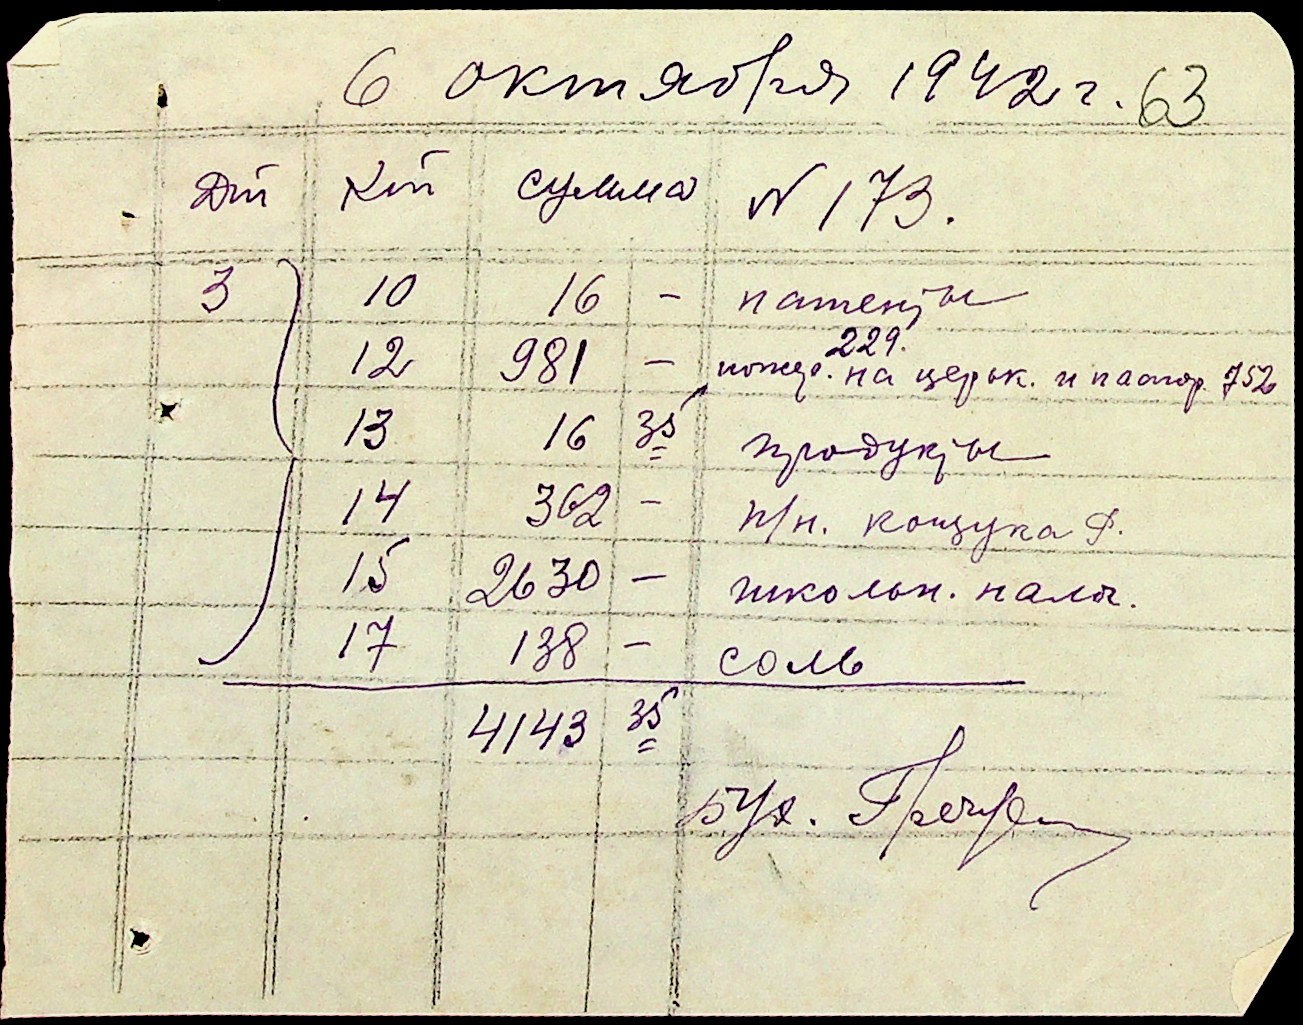 6 октября 1942 г. 63
Дт Кт сумма N 173.
3 10 16 - патенты
229.
12 981 - пожер. на церк. и пастор 752
13 16 35 продукты
14 362 - п/н. Кощука Ф.
15 2630 - школьн. налог.
17 138 - соль
4143 35
Бух.